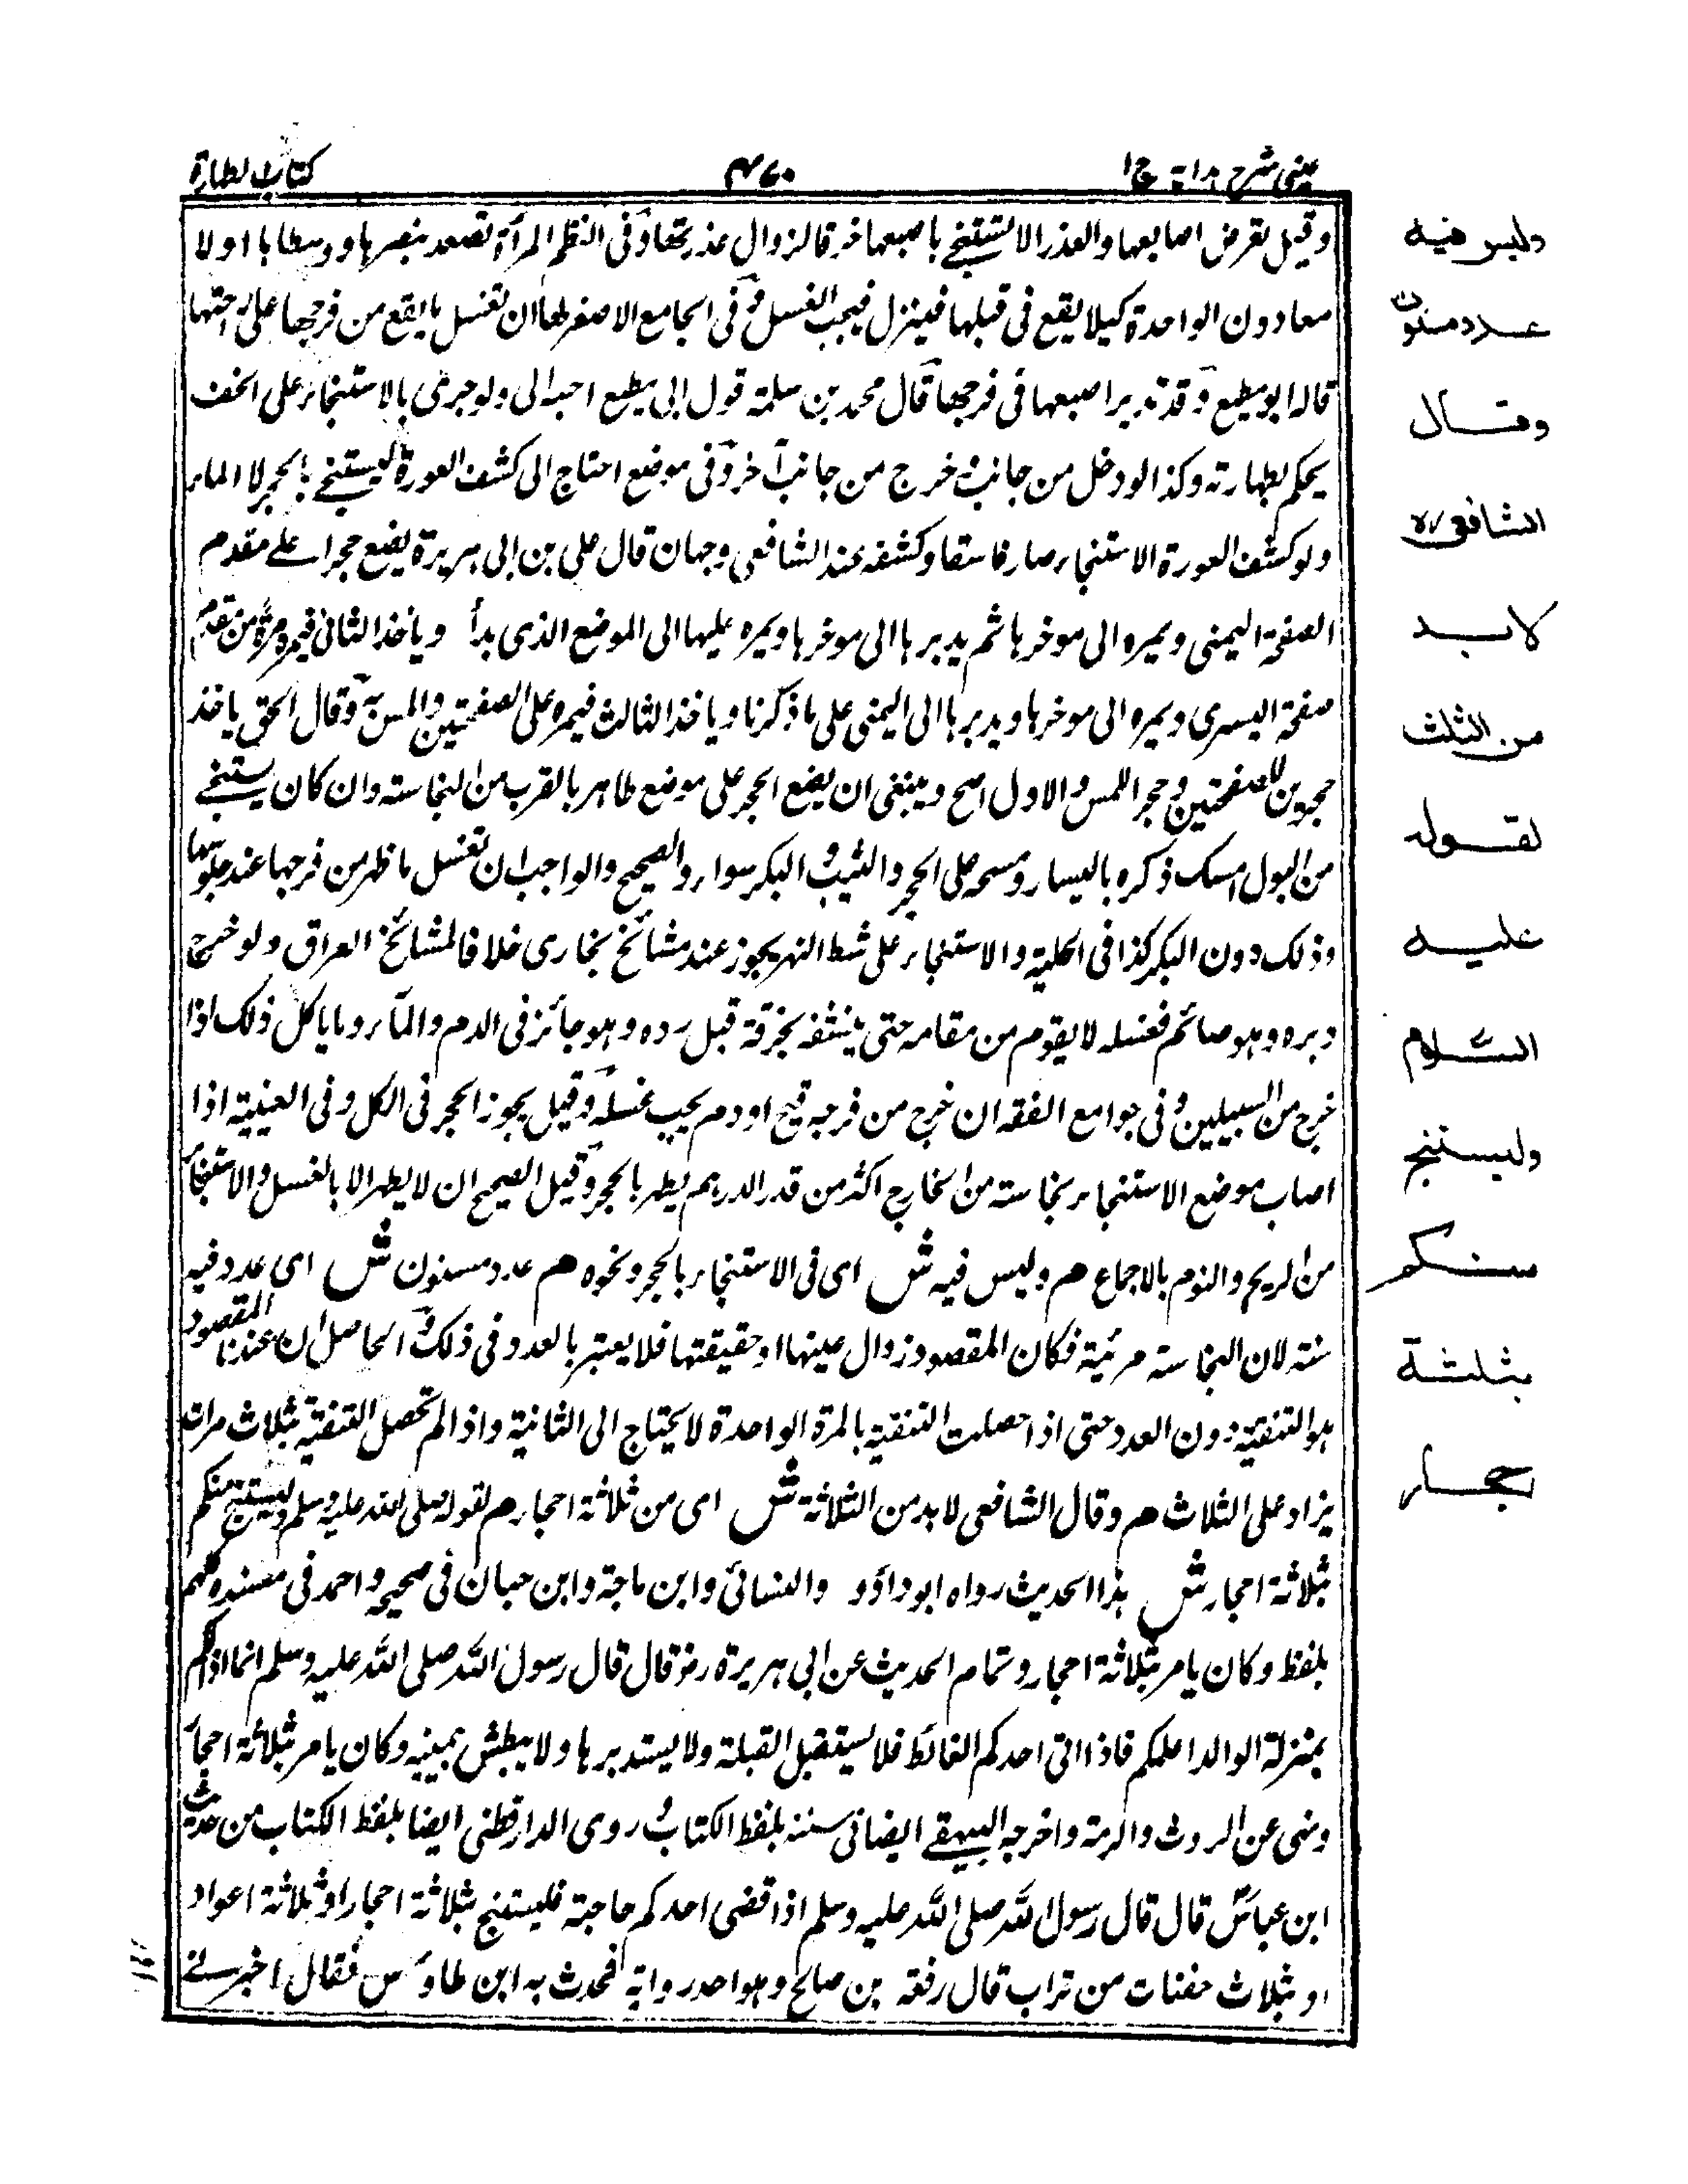 عینی شرح ہدایہ ج۱
۴۷۰
کتاب الطہارۃ
وقیل بعرض اصابعہا والعذراء لا تستنجے باصبعہا خوفا لزوال عذرتہا وفی النظم المرأۃ تصعد بنصرہا ووسطاہا اولا
معا دون الواحدۃ کیلا یقع فی قبلہا فینزل فیجب الغسل وفی الجامع الاصغر لہا ان تغسل ما یقع من فرجہا علی راحتہا
قالہ ابو مطیع وقد تدیر اصبعہا فی فرجہا قال محمد بن سلمۃ قول ابی مطیع احب الی ولو جری ماء الاستنجاء علی الخف
یحکم بطہارتہ وکذا لو دخل من جانب وخرج من جانب آخر وفی موضع احتاج الی کشف العورۃ یستنجے بالحجر لا الماء
ولو کشف العورۃ الاستنجاء صار فاسقا وکشفہ عند الشافعی وجہان قال علی بن ابی ہریرۃ یضع حجرا علے مقدم
الصفحۃ الیمنی ویمرہ الی موخرہا ثم یدبرہا الی موخرہا ویمرہ علیہا الی الموضع الذی بدأ ویاخذ الثانی فیمرہ من مقدم
صفحۃ الیسری ویمرہ الی موخرہا ویدیرہا الی الیمنی علی ما ذکرنا ویاخذ الثالث فیمرہ علی الصفحتین والمسربۃ وقال اسحق یاخذ
حجرین للصفحتین وحجر اللمس والاول اصح وینبغی ان یضع الحجر علی موضع طاہر بالقرب من النجاستہ وان کان یستنجے
من البول امسک ذکرہ بالیسار ومسحہ علی الحجر والثیب والبکر سواء والصحیح والواجب ان تغسل ما ظہر من فرجہا عند جلوسہا
وذلک دون البکر کذا فی الحلیۃ والاستنجاء علی شط النہر یجوز عند مشائخ بخاری خلافا لمشائخ العراق ولو خرج
دبرہ وہو صائم فغسلہ لا یقوم من مقامہ حتی ینشفہ بخرقۃ قبل ردہ وہو جائز فی الدم والماء کل ذلک اذا
خرج من السبیلین وفی جوامع الفقہ ان خرج من فرجہ قیح او دم یجب غسلہ وقیل یجوز الحجر فی الکل وفی الغنیۃ اذا
اصاب موضع الاستنجاء نجاستہ من الخارج اکثر من قدر الدرہم یطہر بالحجر وقیل الصحیح ان لا یطہر الا بالغسل والاستنجاء
من الریح والنوم بالاجماع ھم ولیس فیہ ش ای فی الاستنجاء بالحجر ونحوہ ھم عدد مسنون ش ای عدد فیہ
سنتہ لان النجاستہ مرئیۃ فکان المقصود زوال عینہا او حقیقتہا فلا یعتبر بالعدد فی ذلک والحاصل ان عندنا المقصود
ہو التنقیۃ دون العدد حتی اذا حصلت التنقیۃ بالمرۃ الواحدۃ لا یحتاج الی الثانیۃ واذا لم تحصل التنقیۃ بثلاث مرات
یزاد علی الثلاث ھم وقال الشافعی لا بد من الثلاثۃ ش ای من ثلاثۃ احجار ھم لقولہ صلی اللہ علیہ وسلم ولیستنج منکم
بثلاثۃ احجار ش ہذا الحدیث رواہ ابو داؤد والنسائی وابن ماجۃ وابن حبان فی صحیحہ واحمد فی مسندہ کلہم
بلفظ وکان یامر بثلاثۃ احجار وتمام الحدیث عن ابی ہریرۃ رض قال قال رسول اللہ صلی اللہ علیہ وسلم انما انا لکم
بمنزلۃ الوالد اعلمکم فاذا اتی احدکم الغائط فلا یستقبل القبلۃ ولا یستدبرہا ولا یبطش بیمینہ وکان یامر بثلاثۃ احجار
ونہی عن الروث والرمۃ واخرجہ البیہقے ایضا فی سننہ بلفظ الکتاب وروی الدارقطنی ایضا بلفظ الکتاب من حدیث
ابن عباس قال قال رسول اللہ صلی اللہ علیہ وسلم اذا قضی احدکم حاجتہ فلیستنج بثلاثۃ احجار او ثلاثۃ اعواد
او بثلاث حفنات من تراب قال رفعہ بن صالح وہو احد رواتہ فحدث بہ ابن طاؤس فقال اخبرنے
ولیس فیہ
عدد مسنون
وقال
الشافعی رہ
لابد
من الثلث
لقولہ
علیہ
السلام
ولیستنج
منکم
بثلثۃ
احجار